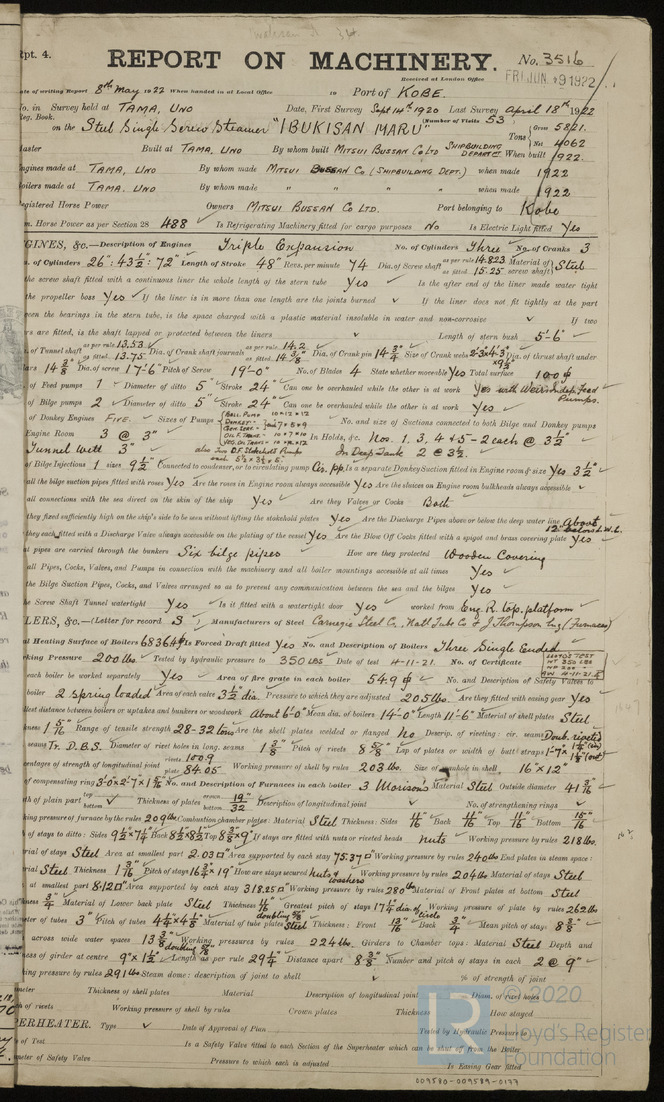 Rpt. 4.
REPORT ON MACHINERY.
No. 3516
Received at London Office
FRI. JUN. 9 1922
Date of writing Report 8th May 1922 When handed in at Local Office Port of KOBE.
No. in Survey held at TAMA, UNO Date, First Survey Sept 14th 1920 Last Survey April 18th 1922
Reg. Book. (Number of Visits 53
on the Steel Single Screw Steamer "IBUKISAN MARU" Tons Gross 5821. Net 4062
Master Built at TAMA, UNO By whom built MITSUI BUSSAN CO LTD SHIPBUILDING DEPARTMT. When built 1922.
Engines made at TAMA, UNO By whom made MITSUI BUSSAN CO (SHIPBUILDING DEPT.) when made 1922
Boilers made at TAMA, UNO By whom made " " " " when made 1922
Registered Horse Power Owners MITSUI BUSSAN CO LTD. Port belonging to Kobe
Nom. Horse Power as per Section 28 488 Is Refrigerating Machinery fitted for cargo purposes No Is Electric Light fitted Yes
ENGINES, &c.—Description of Engines Triple Expansion No. of Cylinders Three No. of Cranks 3
of Cylinders 26": 43½": 72" Length of Stroke 48" Revs. per minute 74 Dia. of Screw shaft as per rule 14.823 as fitted 15.25 Material of screw shaft Steel
the screw shaft fitted with a continuous liner the whole length of the stern tube Yes Is the after end of the liner made water tight
the propeller boss Yes If the liner is in more than one length are the joints burned If the liner does not fit tightly at the part
between the bearings in the stern tube, is the space charged with a plastic material insoluble in water and non-corrosive If two
liners are fitted, is the shaft lapped or protected between the liners Length of stern bush 5'-6"
of Tunnel shaft as per rule 13.53 as fitted 13.75 Dia. of Crank shaft journals as per rule 14.2 as fitted 14⅜" Dia. of Crank pin 14¾" Size of Crank webs Dia. of thrust shaft under
collars 14⅜" Dia. of screw 17'-6" Pitch of Screw 19'-0" No. of Blades 4 State whether moveable Yes Total surface 100
of Feed pumps 1 Diameter of ditto 5" Stroke 24" Can one be overhauled while the other is at work Yes with Weirs Indep. Feed Pumps.
of Bilge pumps 2 Diameter of ditto 5" Stroke 24" Can one be overhauled while the other is at work Yes
of Donkey Engines FIVE. Sizes of Pumps No. and size of Suctions connected to both Bilge and Donkey pumps
Engine Room 3 @ 3" In Holds, &c. Nos. 1, 3, 4 & 5 - 2 each @ 3½"
Tunnel Well 3" In Deep Tank 2 @ 3½.
of Bilge Injections 1 sizes 9½" Connected to condenser, or to circulating pump Cir. pp. Is a separate Donkey Suction fitted in Engine room & size Yes. 3½"
all the bilge suction pipes fitted with roses Yes Are the roses in Engine room always accessible Yes Are the sluices on Engine room bulkheads always accessible
all connections with the sea direct on the skin of the ship Yes Are they Valves or Cocks Both
they fixed sufficiently high on the ship's side to be seen without lifting the stokehold plates Yes Are the Discharge Pipes above or below the deep water line About 12" below L.W.L.
they each fitted with a Discharge Valve always accessible on the plating of the vessel Yes Are the Blow Off Cocks fitted with a spigot and brass covering plate Yes
at pipes are carried through the bunkers Six bilge pipes How are they protected Wooden Covering
all Pipes, Cocks, Valves, and Pumps in connection with the machinery and all boiler mountings accessible at all times Yes
the Bilge Suction Pipes, Cocks, and Valves arranged so as to prevent any communication between the sea and the bilges Yes
the Screw Shaft Tunnel watertight Yes Is it fitted with a watertight door Yes worked from Eng. R. top. platform
BOILERS, &c.—(Letter for record S) Manufacturers of Steel Carnegie Steel Co., Natl Tube Co & J Thompson (Furnaces)
Total Heating Surface of Boilers 6836 Is Forced Draft fitted Yes No. and Description of Boilers Three Single Ended
Working Pressure 200 lbs. Tested by hydraulic pressure to 350 LBS Date of test 4-11-21. No. of Certificate LLOYD'S TEST WT 350 LBS WP 200 4-11-21.
each boiler be worked separately Yes Area of fire grate in each boiler 54.9 No. and Description of Safety Valves to
boiler 2 Spring loaded Area of each valve 3½" dia. Pressure to which they are adjusted 205 lbs. Are they fitted with easing gear Yes
least distance between boilers or uptakes and bunkers or woodwork About 6'-0" Mean dia. of boilers 14'-0" Length 11'-6" Material of shell plates Steel
Thickness 1 5/16" Range of tensile strength 28-32 tons Are the shell plates welded or flanged No Descrip. of riveting: cir. seams Doub. riveted
seams Tr. D.B.S. Diameter of rivet holes in long. seams 1⅜" Pitch of rivets 8⅝" Lap of plates or width of butt straps
percentages of strength of longitudinal joint rivets 100.9 plate 84.05 Working pressure of shell by rules 203 lbs. Size of manhole in shell 16" × 12"
of compensating ring No. and Description of Furnaces in each boiler 3 Morison's Material Steel Outside diameter 41 3/16"
of plain part top bottom Thickness of plates crown bottom 19/32" Description of longitudinal joint No. of strengthening rings
working pressure of furnace by the rules 209 lbs Combustion chamber plates: Material Steel Thickness: Sides 11/16" Back 11/16" Top 11/16" Bottom 15/16"
of stays to ditto: Sides Back 8½×8½ Top If stays are fitted with nuts or riveted heads nuts Working pressure by rules 218 lbs.
Material of stays Steel Area at smallest part 2.03 Area supported by each stay 75.37 Working pressure by rules 240 lbs End plates in steam space:
Material Steel Thickness 1 3/16" Pitch of stays 16¾" × 19" How are stays secured nuts & washers Working pressure by rules 204 lbs Material of stays Steel
at smallest part 8.12 Area supported by each stay 318.25 Working pressure by rules 280 lbs Material of Front plates at bottom Steel
Thickness ¾" Material of Lower back plate Steel Thickness 11/16" Greatest pitch of stays 17¼" dia. of circle Working pressure of plate by rules 262 lbs
Diameter of tubes 3" Pitch of tubes 4¼" × 4⅛" Material of tube plates Steel Thickness: Front 13/16" Back ¾" Mean pitch of stays 8⅜"
across wide water spaces 13⅜" Working pressures by rules 224 lbs. Girders to Chamber tops: Material Steel Depth and
thickness of girder at centre 9" × 1½" Length as per rule 29¼" Distance apart 8⅜" Number and pitch of stays in each 2 @ 9"
Working pressure by rules 291 lbs Steam dome: description of joint to shell % of strength of joint
Diameter Thickness of shell plates Material Description of longitudinal joint Diam. of rivet holes
Pitch of rivets Working pressure of shell by rules Crown plates Thickness How stayed
SUPERHEATER. Type Date of Approval of Plan Tested by Hydraulic Pressure to
of Test Is a Safety Valve fitted to each Section of the Superheater which can be shut off from the Boiler
Diameter of Safety Valve Pressure to which each is adjusted Is Easing Gear fitted
© 2020
LR Lloyd's Register
Foundation
009580-009589-0197